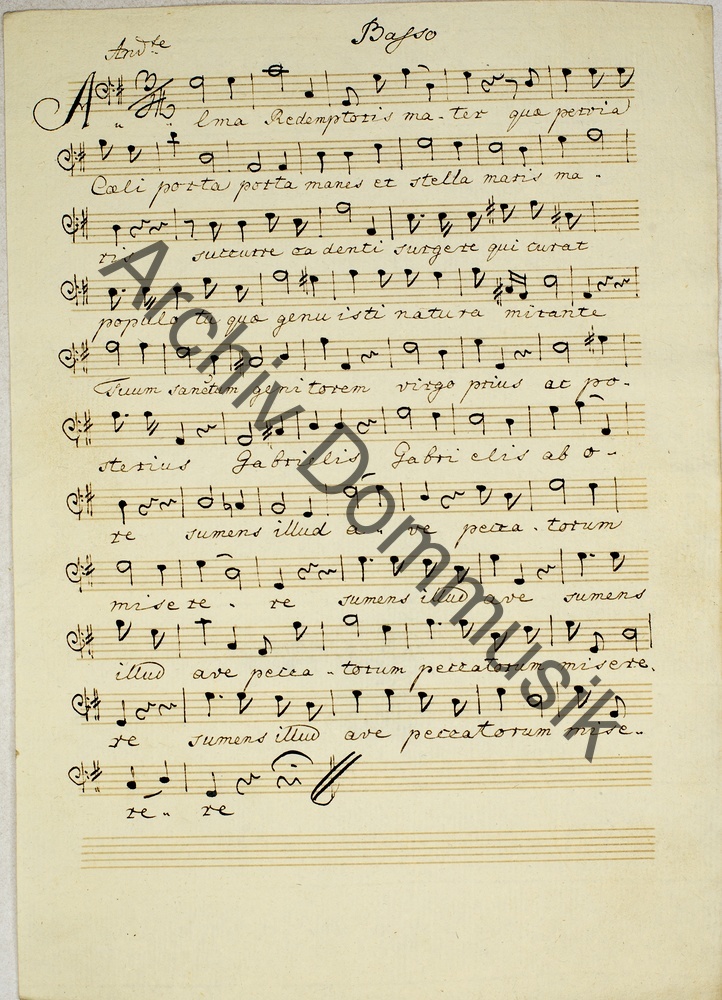 Basso
And.te
Alma Redemptoris ma-ter quæ pervia
Cæli porta porta manes et stella maris ma-
ris succurre cadenti surgere qui curat
populo tu quæ genuisti natura mirante
Tuum sanctum genitorem virgo prius ac po-
sterius Gabrielis Gabrielis ab o-
re sumens illud a-ve pecca-torum
misere-re sumens illud ave sumens
illud ave pecca-torum peccatorum misere-
re sumens illud ave peccatorum mise-
re-re
Archiv Dommusik